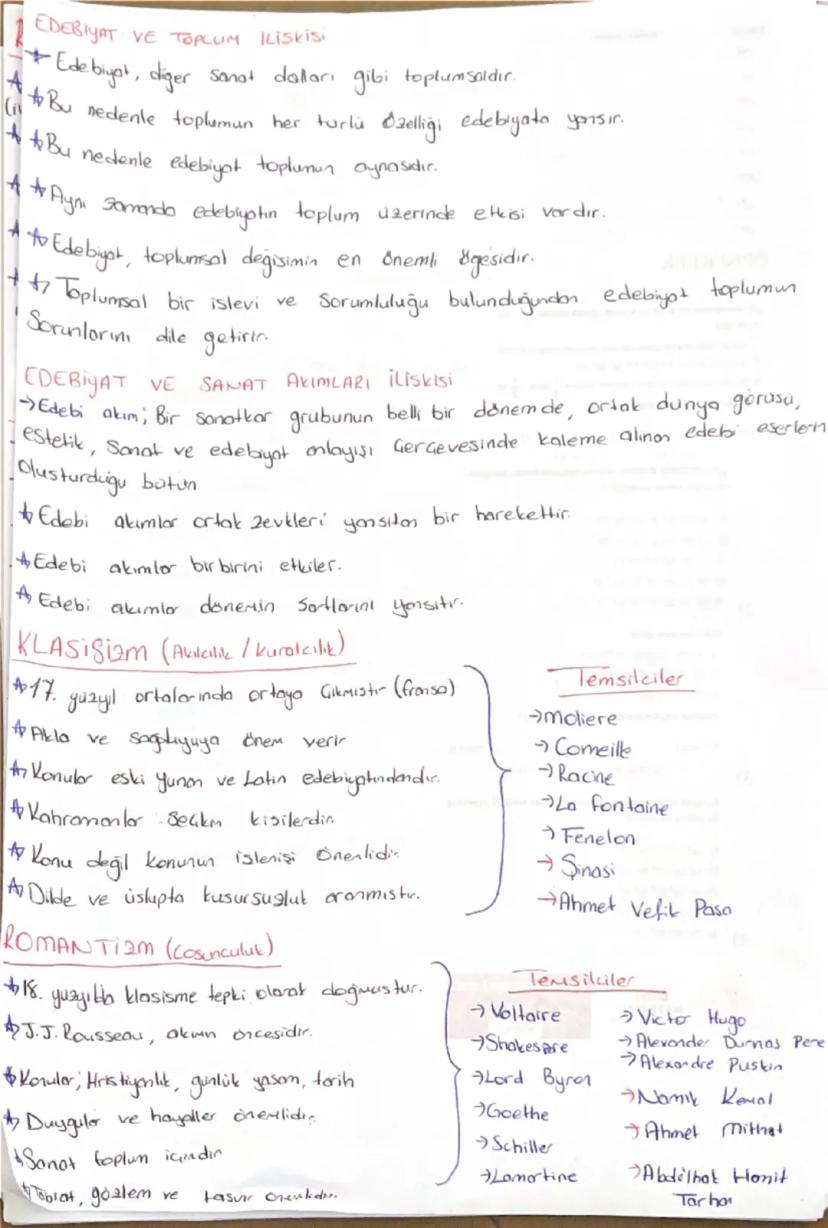 EDEBİYAT VE TOPLUM İLİŞKİSİ
Edebiyat, diğer sanat dalları gibi toplumsaldır.
Bu nedenle toplumun her türlü özelliği edebiyata yansır.
Bu nedenle edebiyat toplumun aynasıdır.
Aynı zamanda edebiyatın toplum üzerinde etkisi vardır.
Edebiyat, toplumsal değişimin en önemli ögesidir.
Toplumsal bir işlevi ve sorumluluğu bulunduğundan edebiyat toplumun
Sorunlarını dile getirir.
EDEBİYAT VE SANAT AKIMLARI İLİŞKİSİ
→Edebi akım; Bir sanatkar grubunun belli bir dönemde, ortak dünya görüşü,
estetik, sanat ve edebiyat anlayışı çerçevesinde kaleme alınan edebi eserlerin
oluşturduğu bütün
Edebi akımlar ortak zevkleri yansıtan bir harekettir.
Edebi akımlar birbirini etkiler.
Edebi akımlar dönemin şartlarını yansıtır.
KLASİSİZM (Akılcılık / Kuralcılık)
17. yüzyıl ortalarında ortaya çıkmıştır (fransa)
Akla ve sağduyuya önem verir
Konular eski yunan ve Latin edebiyatındandır.
Kahramanlar seçkin kişilerdir.
Konu değil konunun işlenişi önemlidir.
Dilde ve üslupta kusursuzluk aranmıştır.
Temsilciler
→Moliere
→Corneille
→Racine
→La fontaine
→Fenelon
→Şinasi
→Ahmet Vefik Paşa
ROMANTİZM (Coşunculuk)
18. yüzyılda klasisme tepki olarak doğmuştur.
J.J. Rousseau, akımın öncesidir.
Konular; Hristiyanlık, günlük yaşam, tarih
Duygular ve hayaller önemlidir.
Sanat toplum içindir
Tabiat, gözlem ve tasvir önemlidir.
Temsilciler
→Voltaire
→Shakespare
→Lord Byron
→Goethe
→Schiller
→Lamartine
→Victor Hugo
→Alexander Dumas Pere
→Alexandre Puskin
→Namık Kemal
→Ahmet Mithat
→Abdülhak Hamit
Tarhan